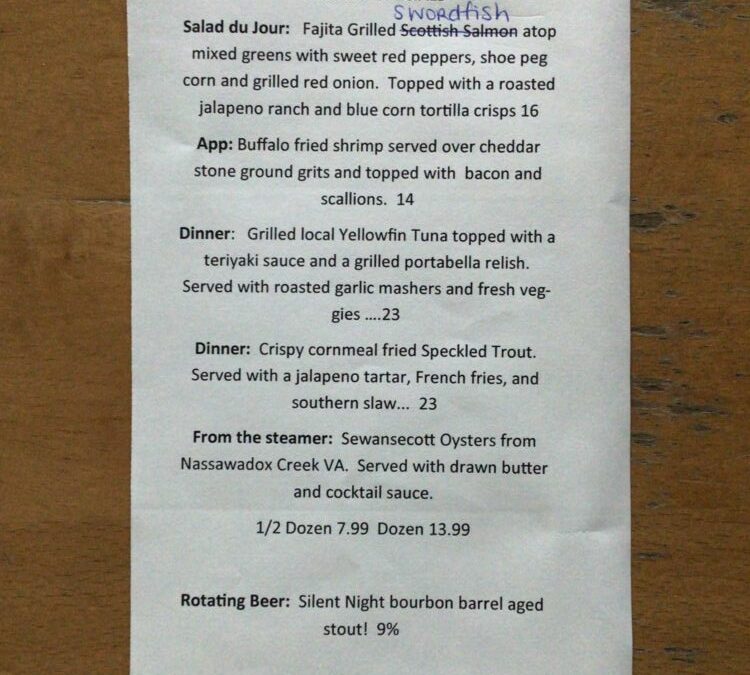 swordfish
Salad du Jour: Fajita Grilled Scottish Salmon atop
mixed greens with sweet red peppers, shoe peg
corn and grilled red onion. Topped with a roasted
jalapeno ranch and blue corn tortilla crisps 16
App: Buffalo fried shrimp served over cheddar
stone ground grits and topped with bacon and
scallions. 14
Dinner: Grilled local Yellowfin Tuna topped with a
teriyaki sauce and a grilled portabella relish.
Served with roasted garlic mashers and fresh veg-
gies ....23
Dinner: Crispy cornmeal fried Speckled Trout.
Served with a jalapeno tartar, French fries, and
southern slaw... 23
From the steamer: Sewansecott Oysters from
Nassawadox Creek VA. Served with drawn butter
and cocktail sauce.
1/2 Dozen 7.99 Dozen 13.99
Rotating Beer: Silent Night bourbon barrel aged
stout! 9%